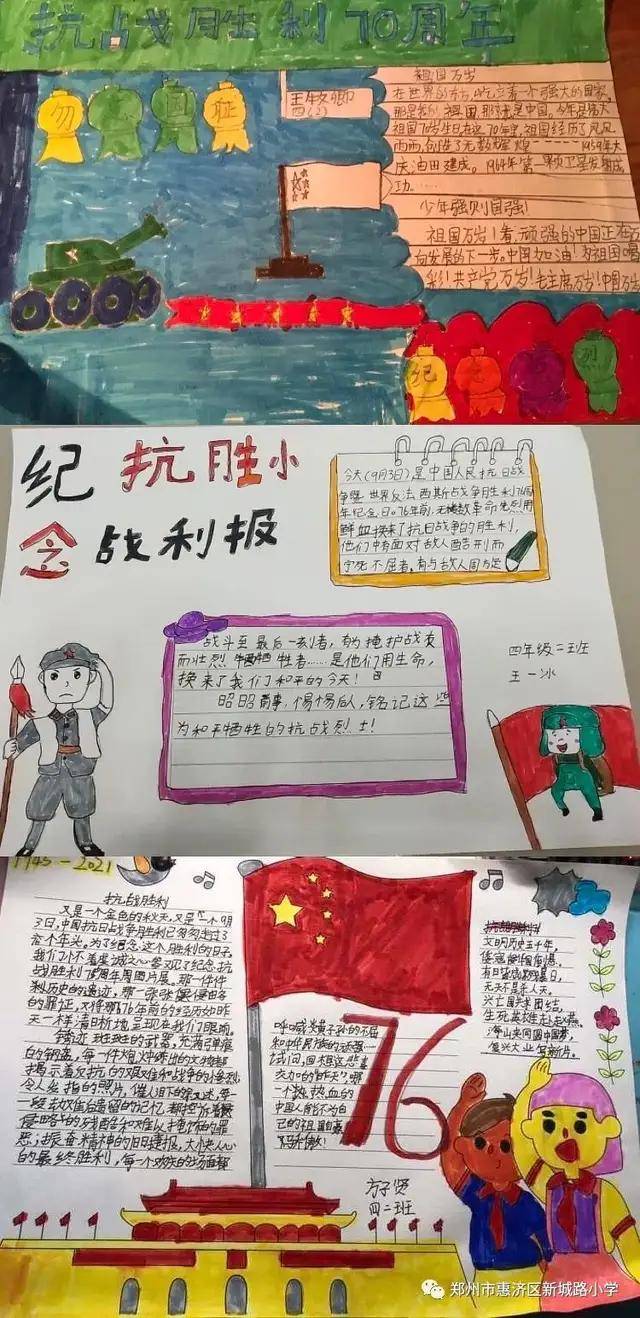 抗战胜利70周年
勿忘国耻
王牧卿
四(2)
祖国万岁
在世界的东方,屹立着一个强大的国家,
那是我们祖国,那就是中国。今年是伟大
祖国70岁生日,在这70年里,祖国经历了风风
雨雨,创造了无数辉煌 1959年大
庆油田建成。1969年第一颗卫星发射成
功……
少年强则国强!
祖国万岁!看,顽强的中国正在
向发展的下一步。中国加油!为祖国唱
我们共产党万岁!毛主席万岁!中国万岁
纪
烈
纪念
抗胜小
战利报
今天(9月3日)是中国人民抗日战
争暨世界反法西斯战争胜利76周
年纪念日。76年前,无数革命先烈用
鲜血换来了抗日战争的胜利,
他们中有面对敌人酷刑而
宁死不屈者,有与敌人周旋
战斗至最后一刻者,有为掩护战友
而壮烈牺牲者……是他们用生命,
换来了我们和平的今天!
昭昭前事,惕惕后人,铭记这些
为和平牺牲的抗战烈士!
四年级二班
王一冰
1945-2021
抗战胜利
又是一个金色的秋天,又是一个9月
3日,中国抗日战争胜利已匆匆走过了
六个年头,为了纪念这个胜利的日子,
战胜利76周年图片展。那一件件
历史的遗迹,那一张张
的罪证,又将那76年前的经历如昨
天一样满目新地呈现在我们眼前。
班班的武器,充满弹痕
的钢盔,每一件
揭示着反抗的艰难和战争的惨烈
令人发指的照片,催人泪下的
段苦难后遗留的记忆,都控诉着
的残酷和难以掩饰的罪
恶;振奋精神的旧日捷报,大快人心
的最终胜利,每一个
呼喊炎黄子孙的不屈
和中华民族的
试问,回想这悲喜
交加的"昨天",哪
一个热血的
中国人能不为自
己的祖国自豪
76
方子贤
四二班
文明历史五千年,
倭寇侵中国
有日
无天不是杀人天。
兴亡国共来团结,
生死英雄
海山共同圆中国梦,
复兴大业写新篇。
郑州市惠济区新城路小学